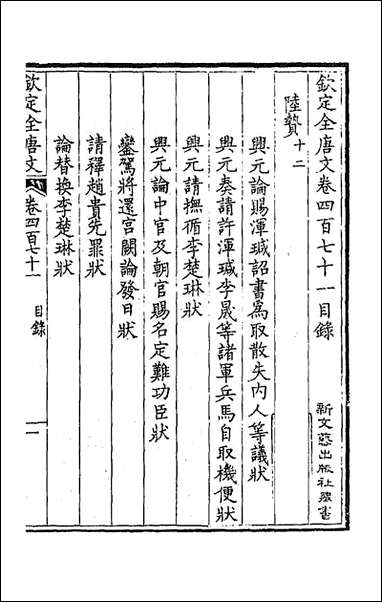 欽定全唐文卷四百七十一目錄
新文藝出版社藏書
陸贄十二
興元論賜渾瑊詔書爲取散失內人等議狀
興元奏請許渾瑊李晟等諸軍兵馬自取機便狀
興元請撫循李楚琳狀
興元論中官及朝官賜名定難功臣狀
鑾駕將還宮闕論發日狀
請釋趙貴先罪狀
論替換李楚琳狀
欽定全唐文
卷四百七十一
目錄
一